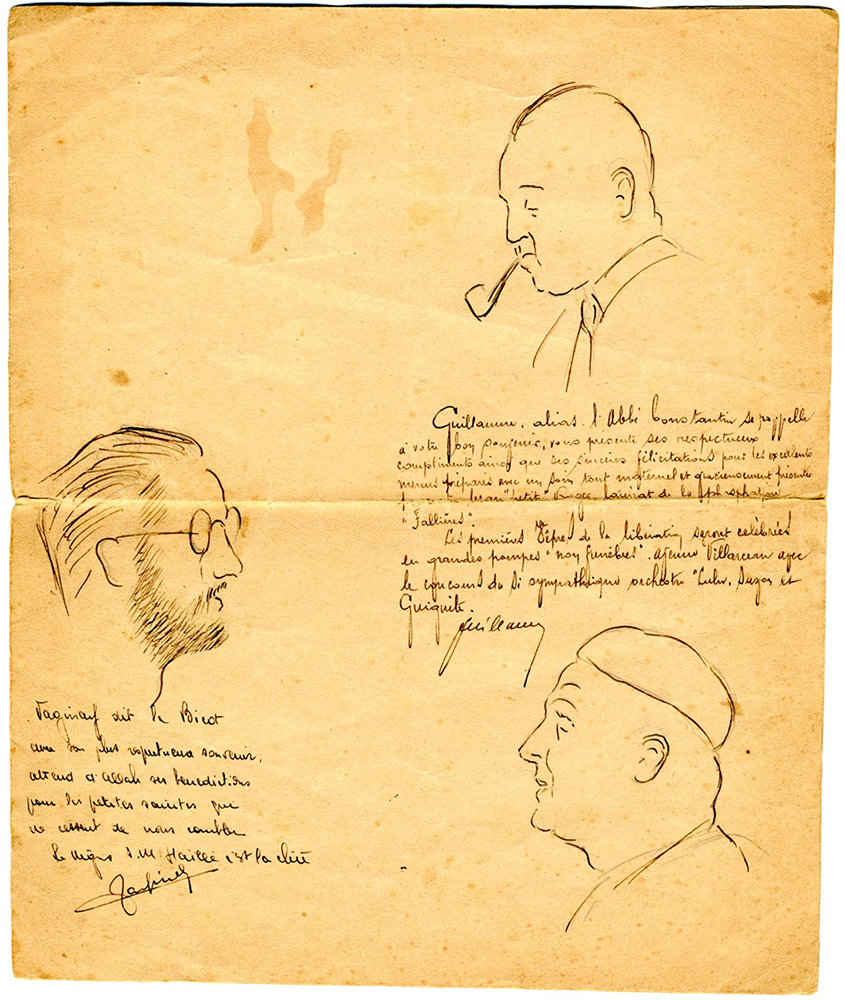 Guillaume, alias l'Abbé Constantin se rappelle
à votre bon souvenir, vous presente ses respectueux
compliments ainsi que ses sincères félicitations pour les excellents
menus préparés avec un soin tout maternel et gracieusement présentés
"petit" lauriat de la
"Fallières".
Les premières Vêpres de la libération seront célébrées
en grandes pompes "non funèbres". avenue Villarceau avec
le concours du si sympathique orchestre "Lulu, Suzon et
Guiguite.
Guillaume
dit le Bicot
avec son plus respectueux souvenir,
attend d'Allah ses bénédictions
pour les petites saintes que
ne cessent de nous combler
Le négus S.M Haillé